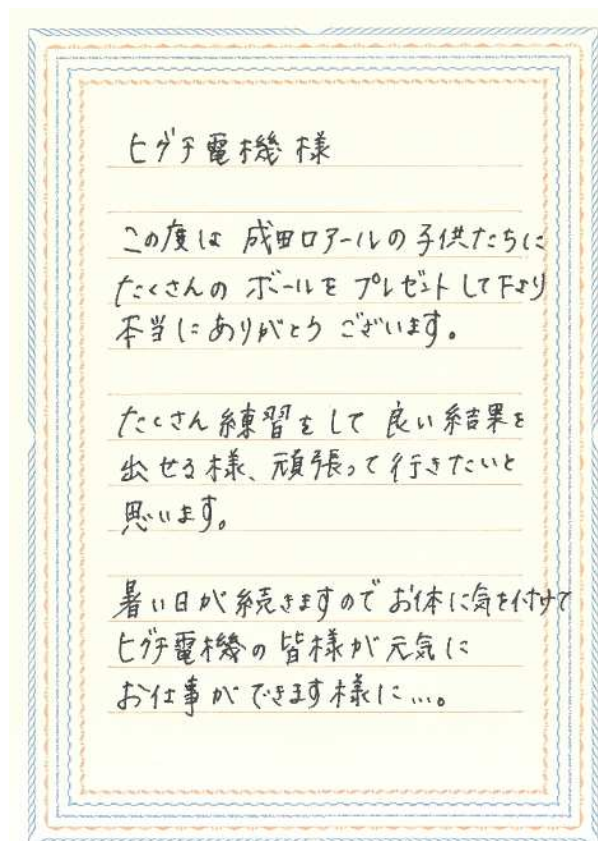 ヒグチ電機様
この度は 成田ロアールの子供たちに
たくさんの ボールを プレゼント して下より
本当に ありがとう ございます。
たくさん練習をして 良い結果を
出せる様、頑張って行きたいと
思います。
暑い日が続きますので お体に気を付けて
ヒグチ電機の皆様が元気に
お仕事ができます様に…。